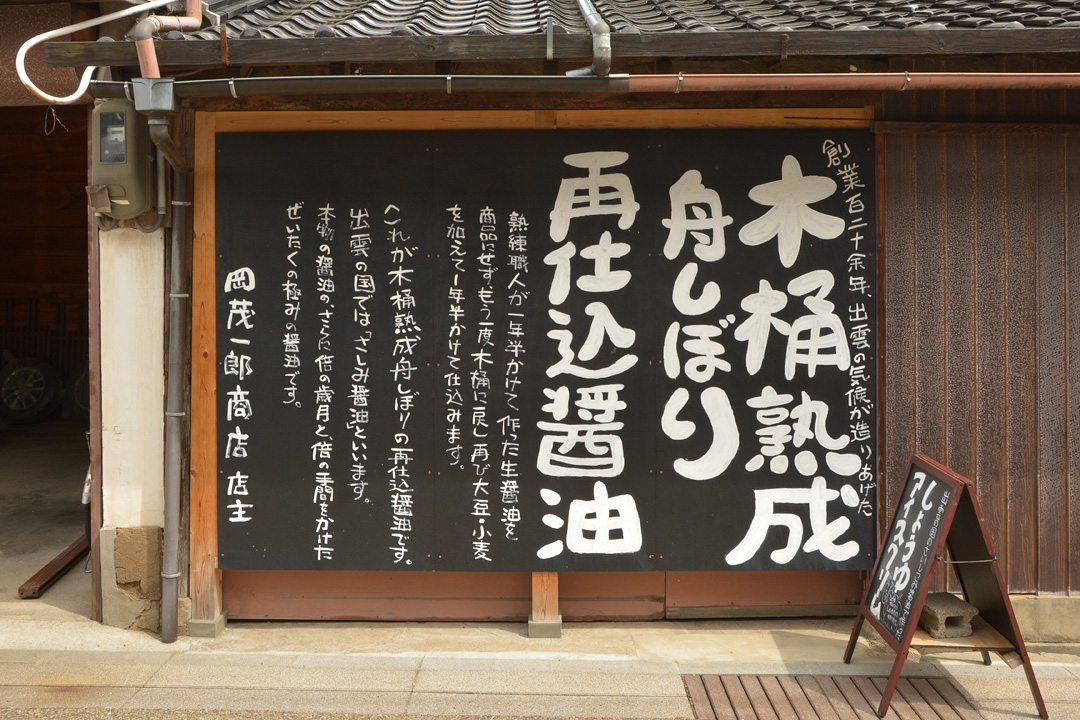 創業百二十余年、出雲の気候が造りあげた
木桶熟成
舟しぼり
再仕込醤油
熟練職人が一年半かけて、作った生醤油を
商品にせず、もう一度木桶に戻し再び大豆・小麦
を加えて1年半かけて仕込みます。
これが木桶熟成舟しぼりの再仕込醤油です。
出雲の国では「さしみ醤油」といいます。
本物の醤油の、さらに倍の歳月と、倍の手間をかけた
ぜいたくの極みの醤油です。
岡茂一郎商店 店主
しょうゆ
アイスクリーム